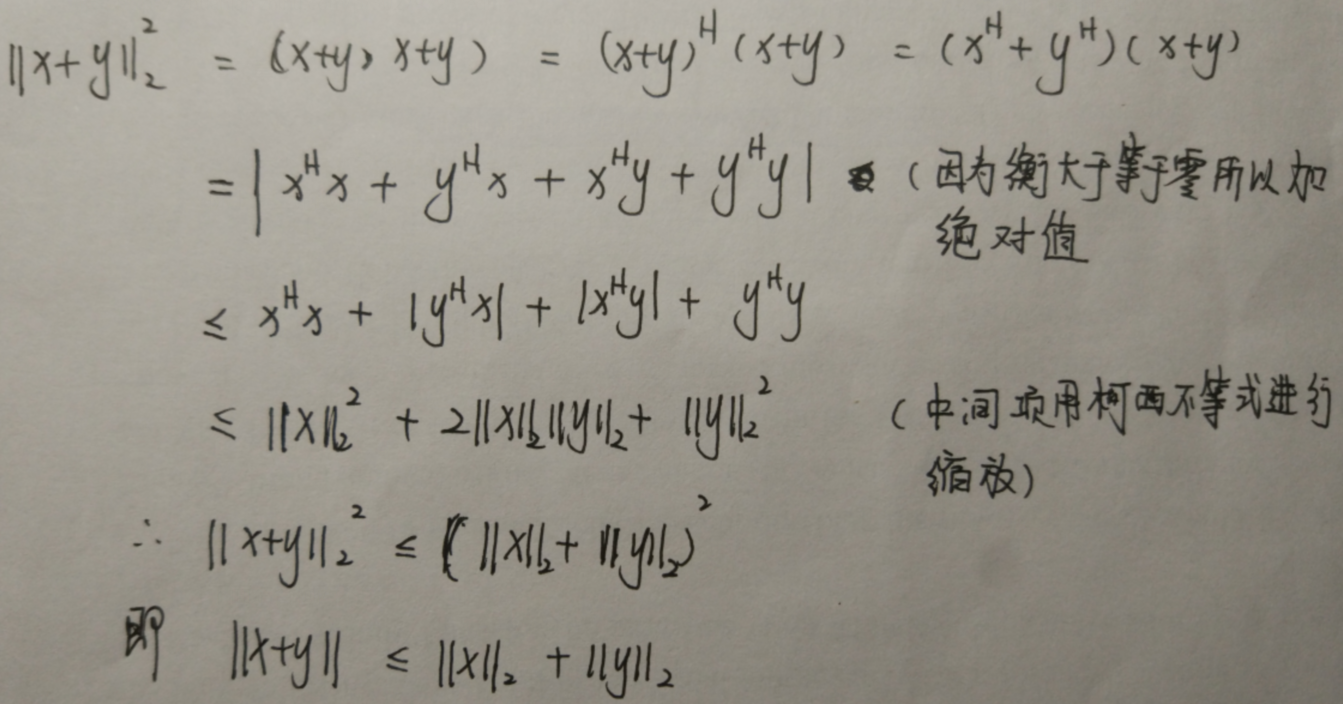 ||x+y||₂² = (x+y, x+y) = (x+y)ᴴ(x+y) = (xᴴ+yᴴ)(x+y)
= | xᴴx + yᴴx + xᴴy + yᴴy | (因为衡大于等于零所以加
绝对值
≤ xᴴx + |yᴴx| + |xᴴy| + yᴴy
≤ ||x||₂² + 2||x||₂||y||₂ + ||y||₂² (中间项用柯西不等式进行
缩放)
∴ ||x+y||₂² ≤ (||x||₂ + ||y||₂)²
即 ||x+y|| ≤ ||x||₂ + ||y||₂